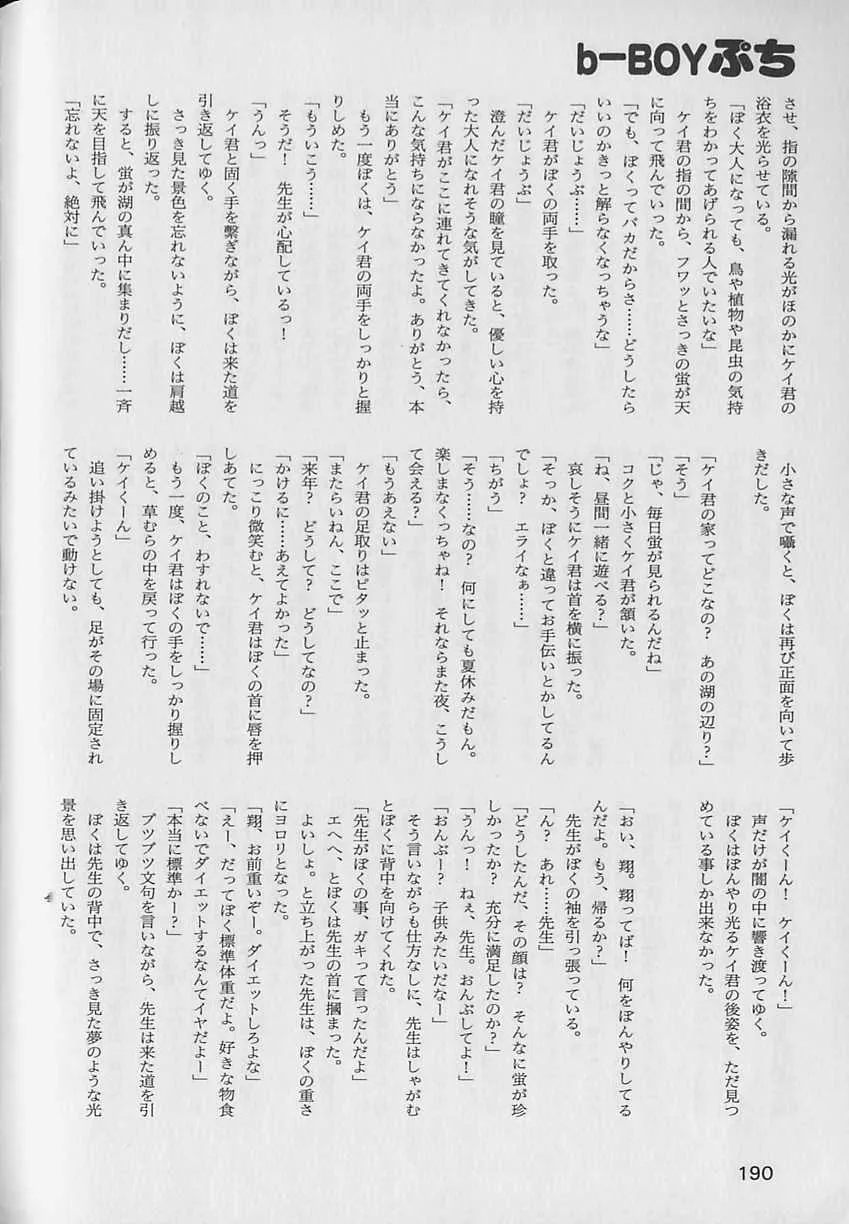 b-BOYぷち
させ、指の隙間から漏れる光がほのかにケイ君の
浴衣を光らせている。
「ぼく大人になっても、鳥や植物や昆虫の気持
ちをわかってあげられる人でいたいな」
ケイ君の指の間から、フワッとさっきの蛍が天
に向って飛んでいった。
「でも、ぼくってバカだからさ……どうしたら
いいのかきっと解らなくなっちゃうな」
「だいじょうぶ……」
ケイ君がぼくの両手を取った。
「だいじょうぶ」
澄んだケイ君の瞳を見ていると、優しい心を持
った大人になれそうな気がしてきた。
「ケイ君がここに連れてきてくれなかったら、
こんな気持ちにならなかったよ。ありがとう、本
当にありがとう」
もう一度ぼくは、ケイ君の両手をしっかりと握
りしめた。
「もういこう……」
そうだ！　先生が心配しているっ！
「うんっ」
ケイ君と固く手を繋ぎながら、ぼくは来た道を
引き返してゆく。
さっき見た景色を忘れないように、ぼくは肩越
しに振り返った。
すると、蛍が湖の真ん中に集まりだし……一斉
に天を目指して飛んでいった。
「忘れないよ、絶対に」
小さな声で囁くと、ぼくは再び正面を向いて歩
きだした。
「ケイ君の家ってどこなの？　あの湖の辺り？」
「そう」
「じゃ、毎日蛍が見られるんだね」
コクと小さくケイ君が頷いた。
「ね、昼間一緒に遊べる？」
哀しそうにケイ君は首を横に振った。
「そっか、ぼくと違ってお手伝いとかしてるん
でしょ？　エライなぁ……」
「ちがう」
「そう……なの？　何にしても夏休みだもん。
楽しまなくっちゃね！　それならまた夜、こうし
て会える？」
「もうあえない」
ケイ君の足取りはピタッと止まった。
「またらいねん、ここで」
「来年？　どうして？　どうしてなの？」
「かけるに……あえてよかった」
にっこり微笑むと、ケイ君はぼくの首に唇を押
しあてた。
「ぼくのこと、わすれないで……」
もう一度、ケイ君はぼくの手をしっかり握りし
めると、草むらの中を戻って行った。
「ケイくーん」
追い掛けようとしても、足がその場に固定され
ているみたいで動けない。
「ケイくーん！　ケイくーん！」
声だけが闇の中に響き渡ってゆく。
ぼくはぼんやり光るケイ君の後姿を、ただ見つ
めている事しか出来なかった。
「おい、翔。翔ってば！　何をぼんやりしてる
んだよ。もう、帰るか？」
先生がぼくの袖を引っ張っている。
「ん？　あれ……先生」
「どうしたんだ、その顔は？　そんなに蛍が珍
しかったか？　充分に満足したのか？」
「うんっ！　ねぇ、先生。おんぶしてよ！」
「おんぶー？　子供みたいだなー」
そう言いながらも仕方なしに、先生はしゃがむ
とぼくに背中を向けてくれた。
「先生がぼくの事、ガキって言ったんだよ」
エヘヘ、とぼくは先生の首に摑まった。
よいしょ。と立ち上がった先生は、ぼくの重さ
にヨロリとなった。
「翔、お前重いぞー。ダイエットしろよな」
「えー、だってぼく標準体重だよ。好きな物食
べないでダイエットするなんてイヤだよー」
「本当に標準かー？」
ブツブツ文句を言いながら、先生は来た道を引
き返してゆく。
ぼくは先生の背中で、さっき見た夢のような光
景を思い出していた。
190